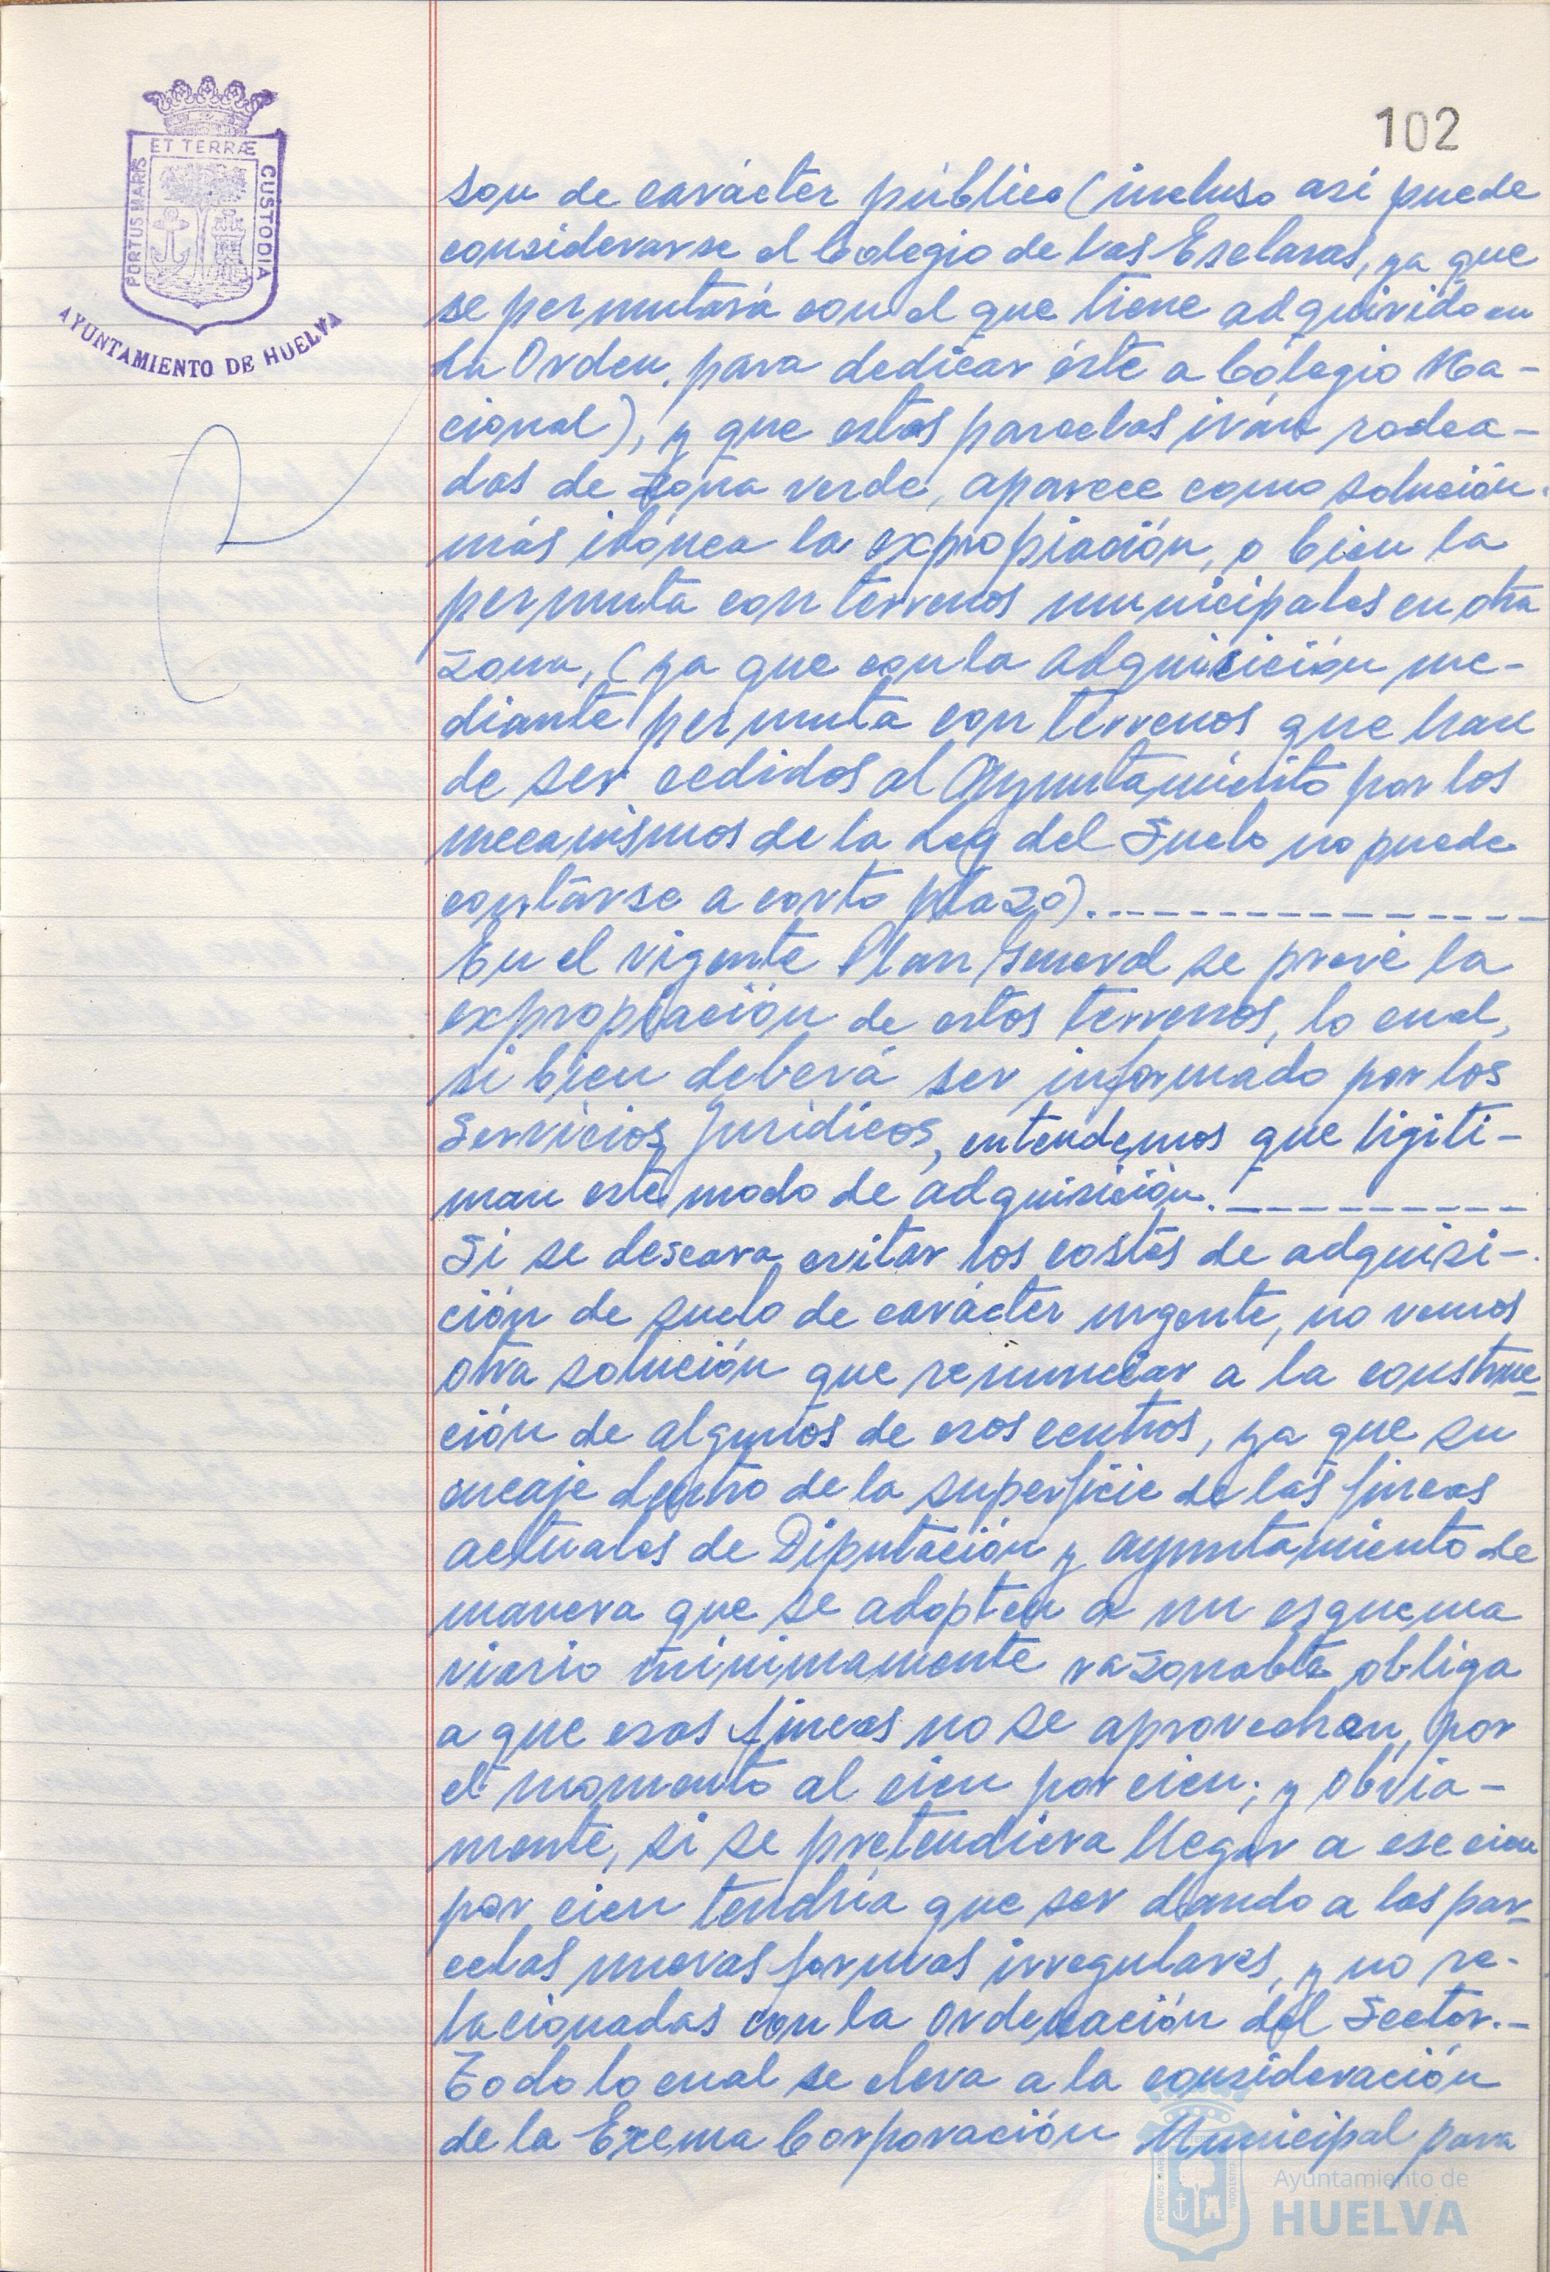 102
ET TERRÆ
PORTUS MARIS
CUSTODIA
AYUNTAMIENTO DE HUELVA
son de carácter público (incluso así puede
considerarse el Colegio de las Esclavas, ya que
se permutará con el que tiene adquirido en
La Orden, para dedicar éste a Colegio Na-
cional), y que estas parcelas irán rodea-
das de zona verde, aparece como solución
más idónea la expropiación, o bien la
permuta con terrenos municipales en otra
zona, (ya que con la adquisición me-
diante permuta con terrenos que han
de ser cedidos al Ayuntamiento por los
mecanismos de la Ley del Suelo no puede
contarse a corto plazo).
En el vigente Plan General se prevé la
expropiación de estos terrenos, lo cual,
si bien deberá ser informado por los
Servicios Jurídicos, entendemos que ligiti-
man este modo de adquisición.
Si se deseara evitar los costes de adquisi-
ción de suelo de carácter urgente, no vemos
otra solución que renunciar a la construc-
ción de algunos de esos centros, ya que su
encaje dentro de la superficie de las fincas
actuales de Diputación y Ayuntamiento de
manera que se adopten a un esquema
viario mínimamente razonable obliga
a que esas fincas no se aprovechen, por
el momento al cien por cien; y obvia-
mente, si se pretendiera llegar a ese cien
por cien tendría que ser dando a las par-
celas nuevas formas irregulares, y no re-
lacionadas con la Ordenación del Sector.-
Todo lo cual se eleva a la consideración
de la Excma Corporación Municipal para
Ayuntamiento de
HUELVA